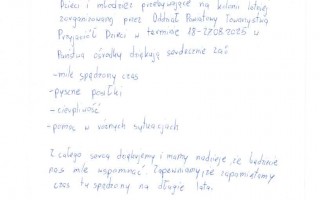 Dzieci i młodzież przebywające na kolonii letniej
zorganizowanej przez Oddział Powiatowy Towarzystwa
Przyjaciół Dzieci w terminie 18-27.08.2025 w
ośrodku dziękują serdecznie za:
-mile spędzony czas
-pyszne posiłki
-cierpliwość
-pomoc w różnych sytuacjach
Z całego serca dziękujemy i mamy nadzieję, że będziecie
nas mile wspominać. Zapewniamy, że zapamiętamy
czas tu spędzony na długie lata.